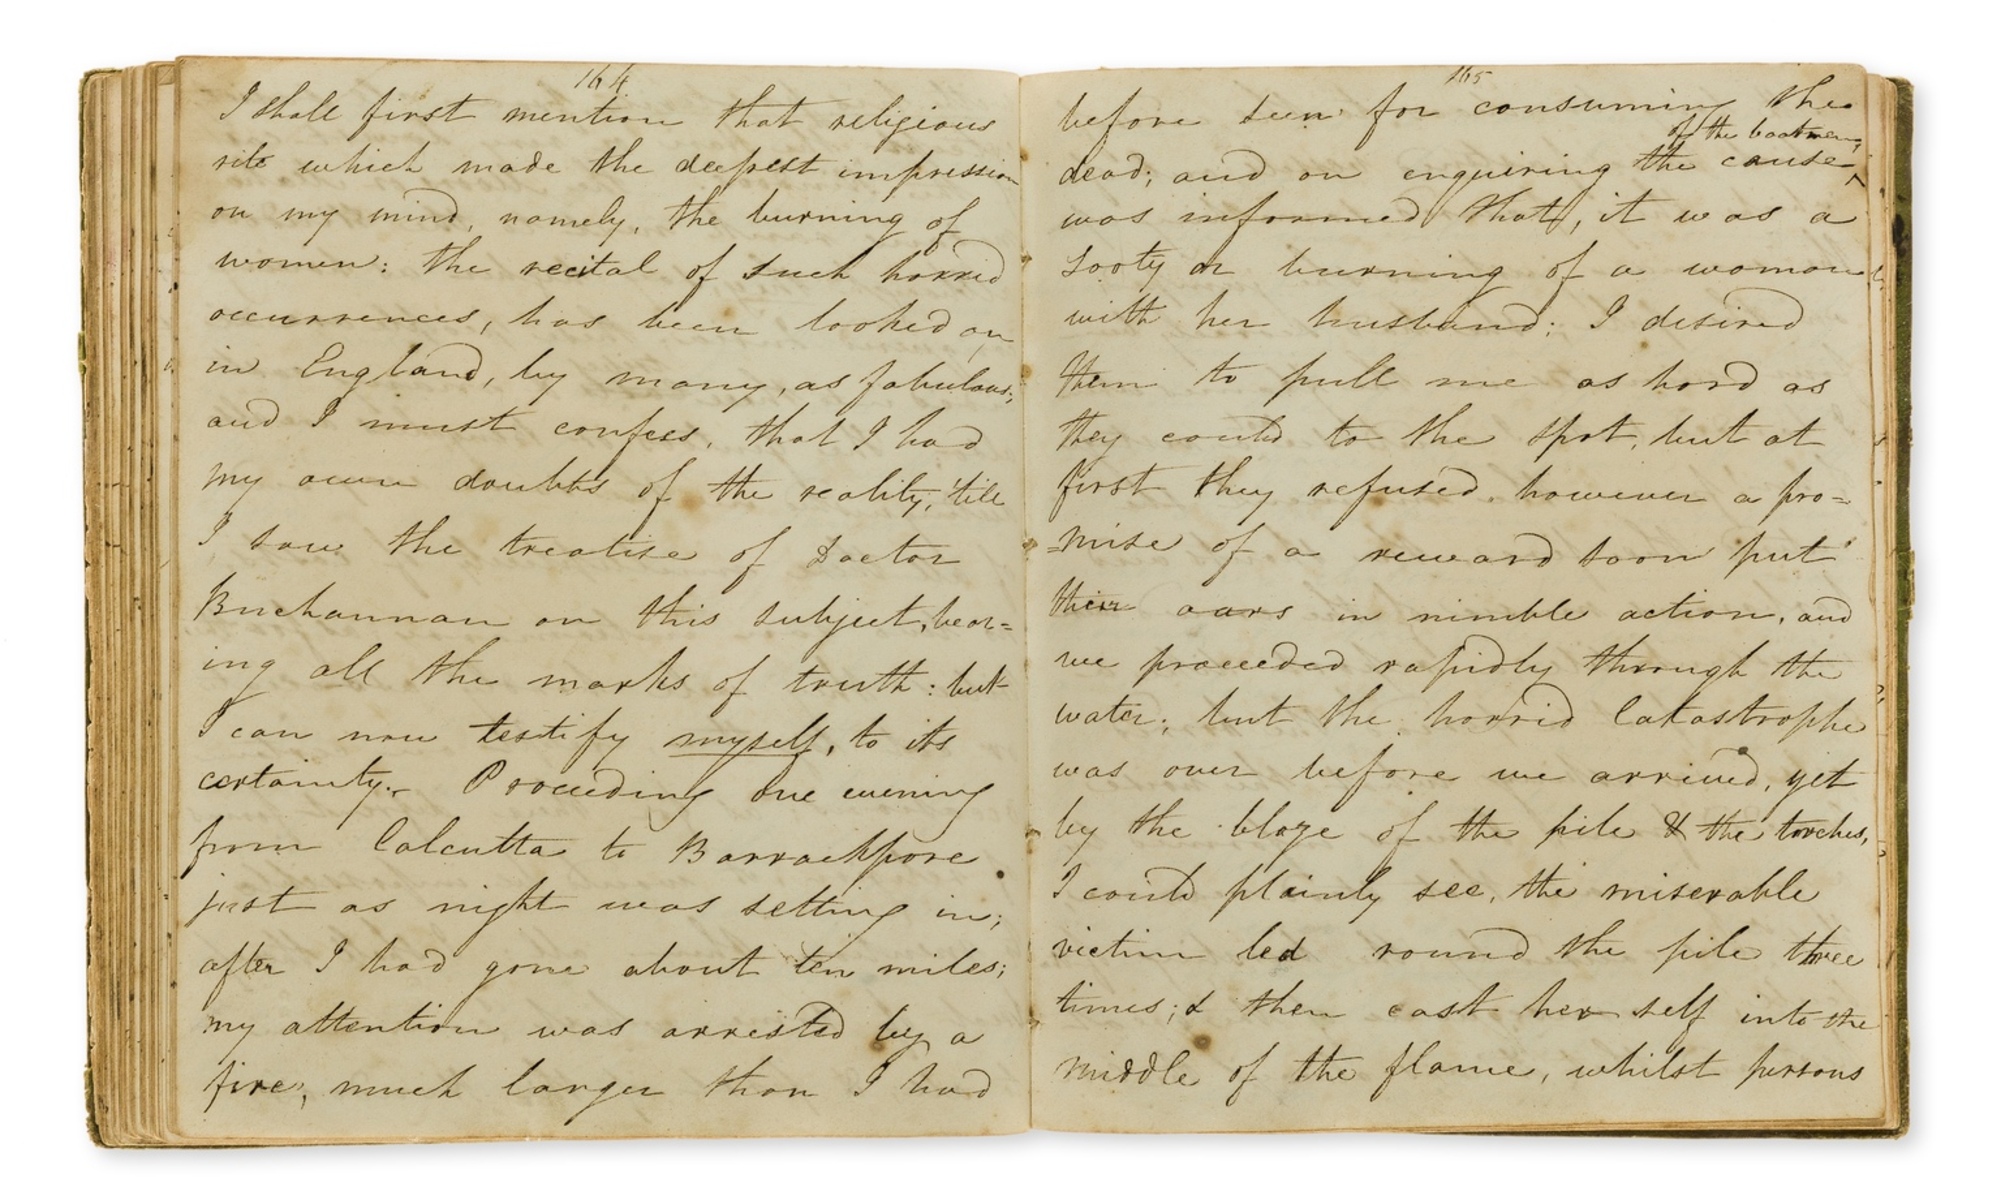 164
I shall first mention that religious
rite which made the deepest impression
on my mind, namely, the burning of
women: the recital of such horrid
occurrences, has been looked on
in England, by many, as fabulous;
and I must confess, that I had
my own doubts of the reality, 'till
I saw the treatise of Doctor
Buchannan on this subject, bear=
ing all the marks of truth: but
I can now testify myself, to its
certainty. Proceeding one evening
from Calcutta to Barrackpore
just as night was setting in;
after I had gone about ten miles;
my attention was arrested by a
fire, much larger than I had
165
before seen for consuming the
of the boatmen,
dead; and on enquiring the cause
was informed that, it was a
Sooty or burning of a woman
with her husband; I desired
them to pull me as hard as
they could to the spot, but at
first they refused. however a pro=
=mise of a reward soon put
their oars in nimble action, and
we proceeded rapidly through the
water; but the horrid Catastrophe
was over before we arrived, yet
by the blaze of the pile & the torches,
I could plainly see, the miserable
victim led round the pile three
times; & then cast her self into the
middle of the flame, whilst persons